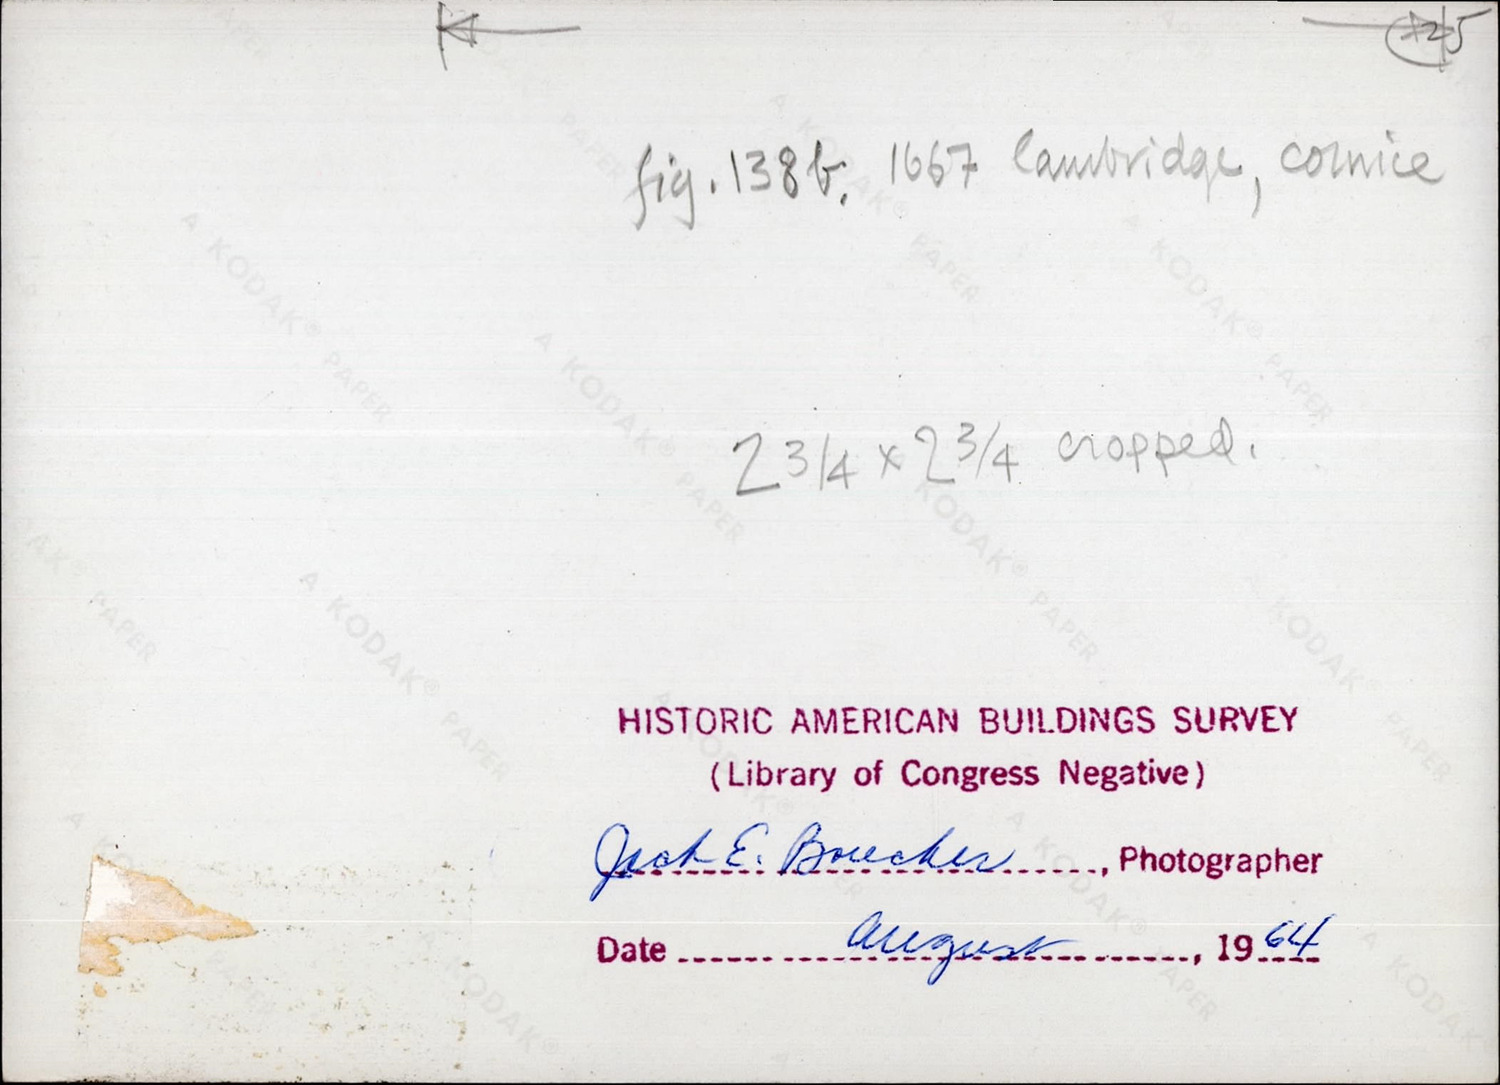 25
fig. 138b. 1667 Cambridge, cornice
2 3/4 x 2 3/4 cropped.
HISTORIC AMERICAN BUILDINGS SURVEY
(Library of Congress Negative)
Jack E. Boucher, Photographer
Date August, 1964
A KODAK® PAPER